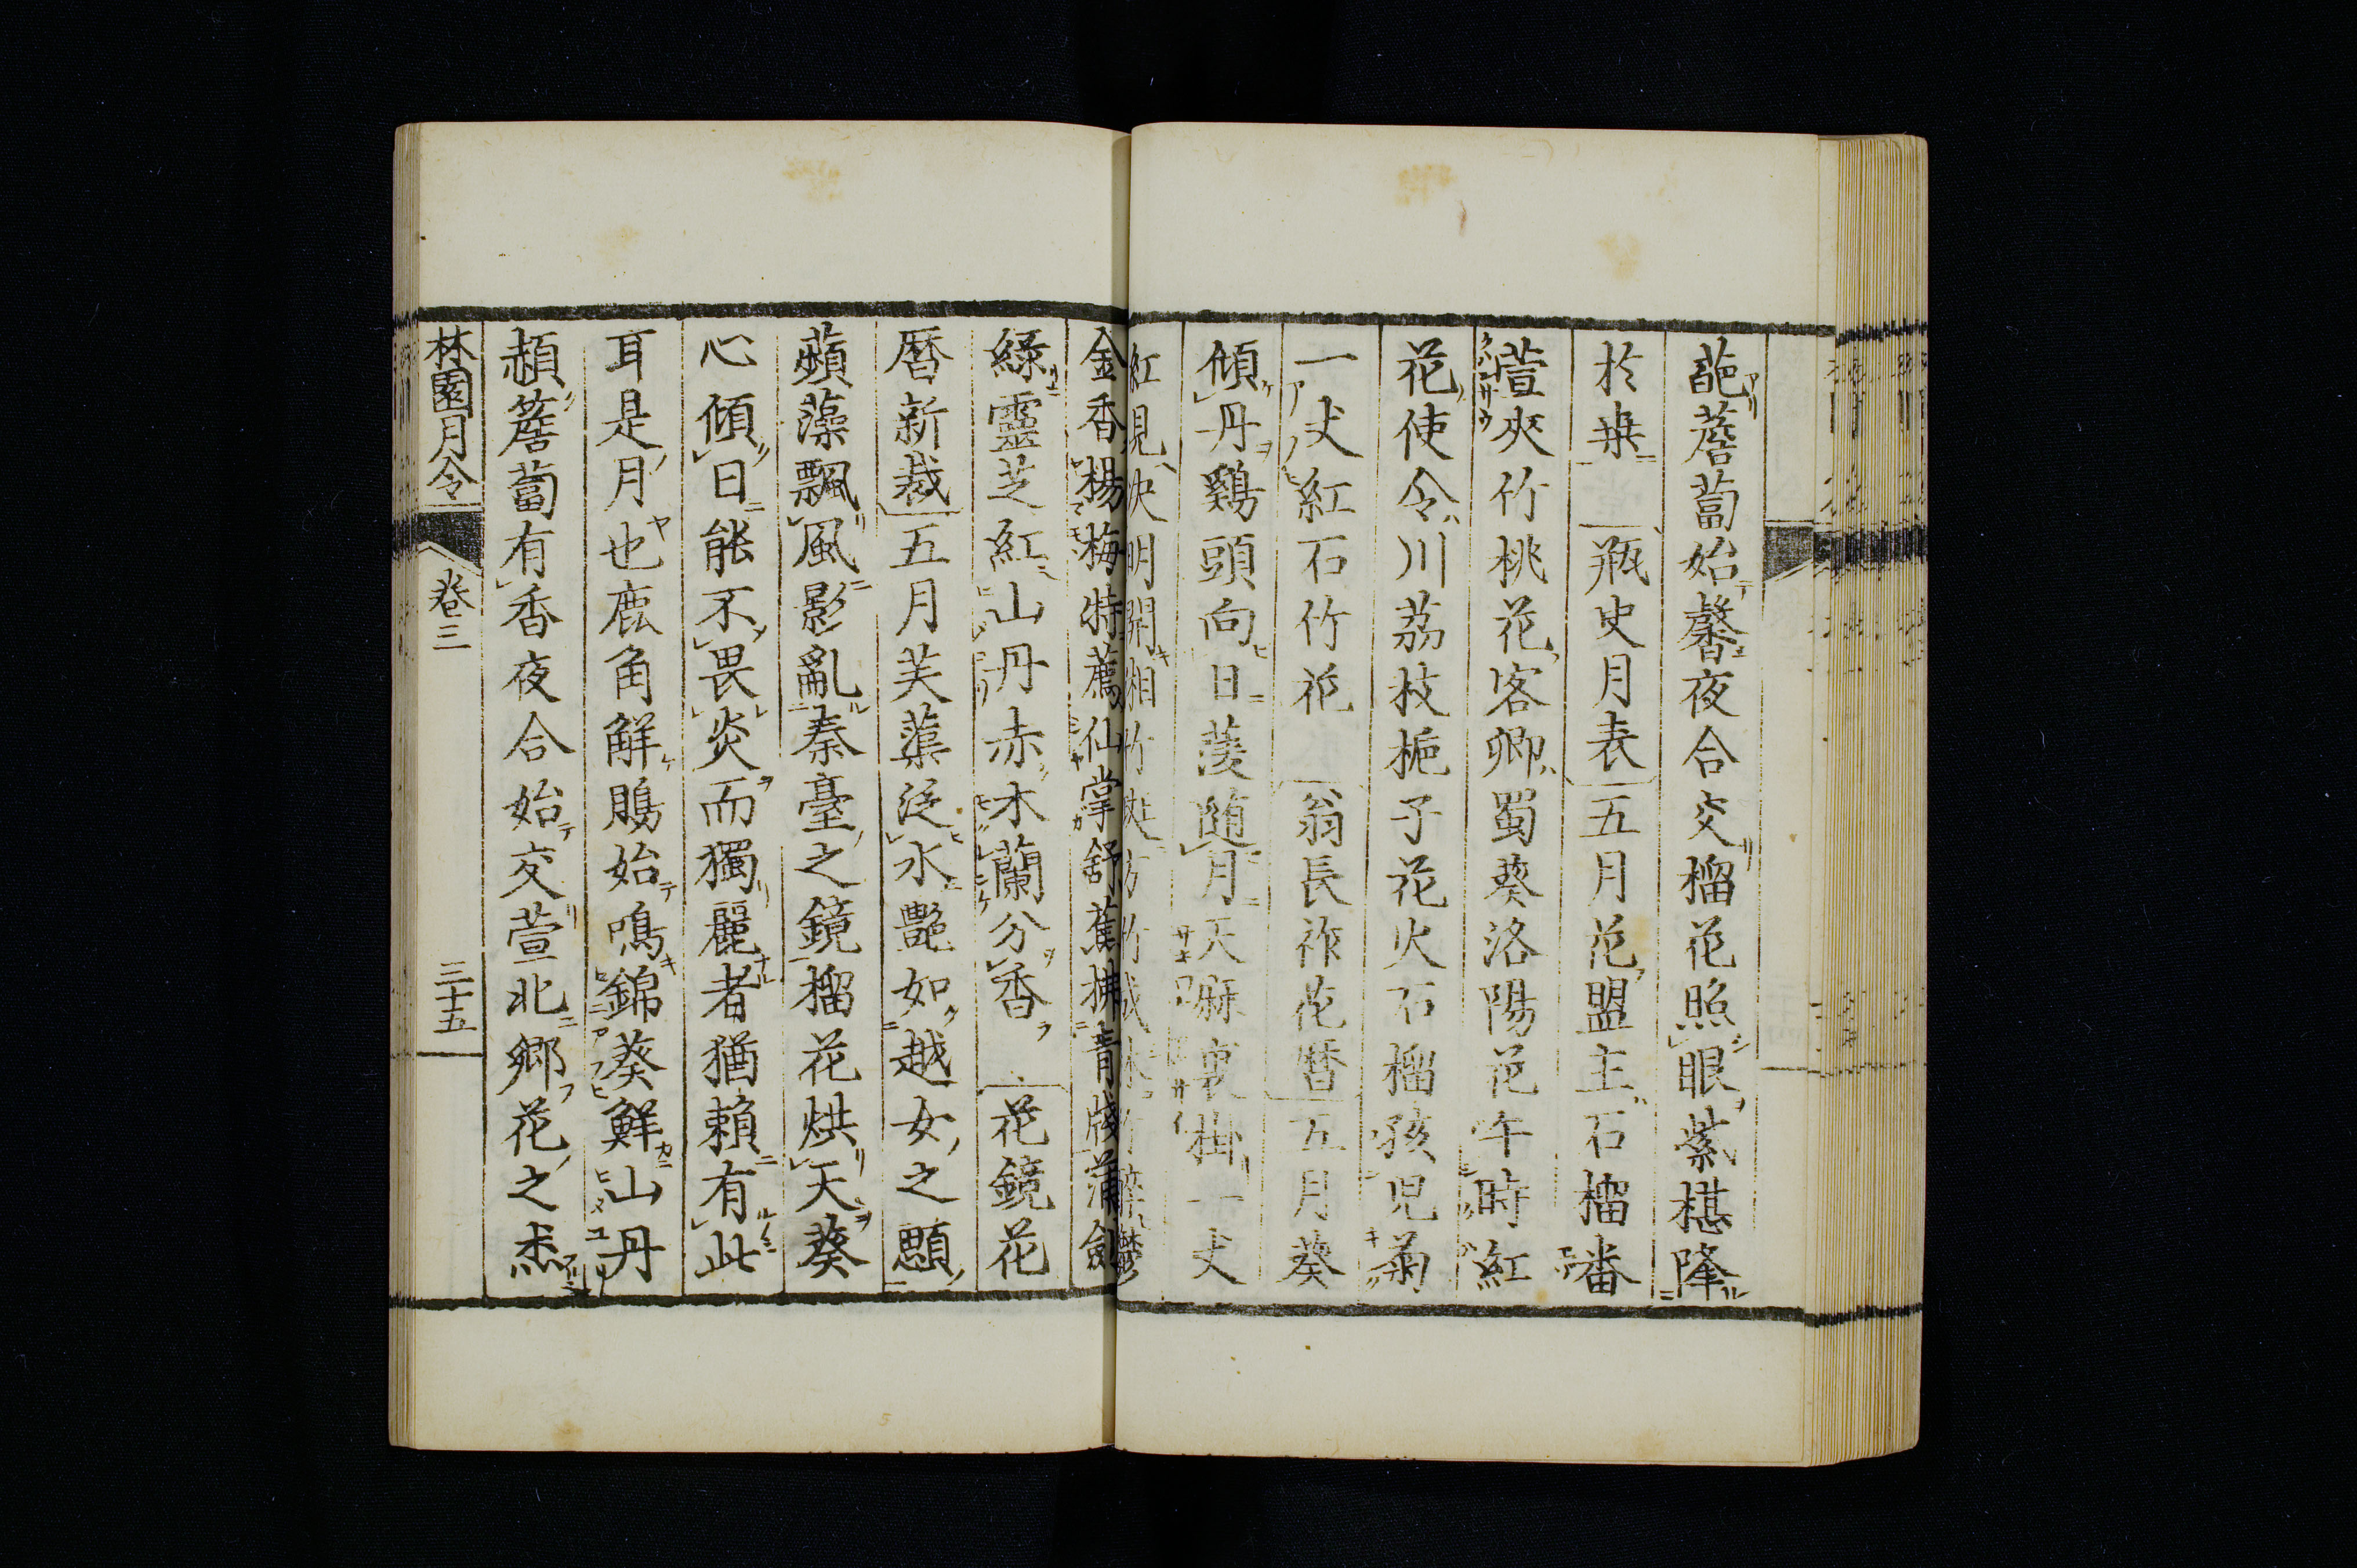 葩薝蔔始馨夜合交榴花照眼紫椹降
於桒瓶史月表五月花盟主石榴番
萱夾竹桃花客卿蜀葵洛陽花午時紅
花使令川荔枝梔子花火石榴孩児菊
一丈紅石竹花翁長祚花暦五月葵
傾丹鷄頭向日蔆随月天麻裏掛一丈
紅見決明開湘竹方竹
金香楊梅特薦仙掌舒蕉拂青牋蒲劍
緑靈芝紅山丹赤木蘭分香花鏡花
暦新裁五月芙蕖泛水艶如越女之顋
蘋藻飄風影亂秦臺之鏡榴花烘天葵
心傾日能不畏炎而獨麗者猶頼有此
耳是月也鹿角解鵙始鳴錦葵鮮山丹
頳薝蔔有香夜合始交萱北郷花之杰
林園月令
卷三
三十五